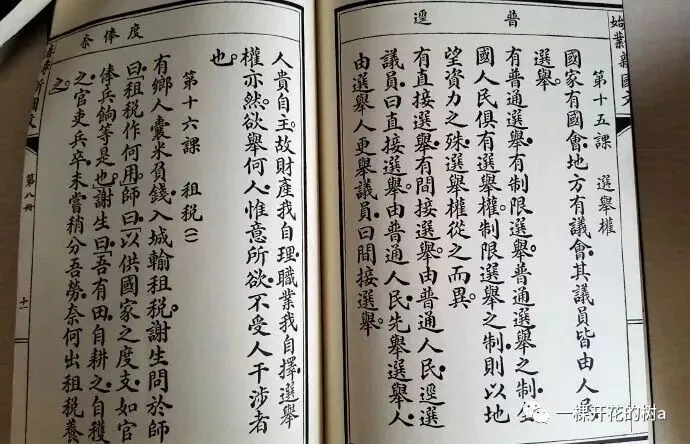 普逕
第十五課 選舉權
國家有國會。地方有議會。其議員皆由人民
選舉。
有普通選舉。有制限選舉。普通選舉之制。全
國人民俱有選舉權。制限選舉之制。則以地
望資力之殊。選舉權從之而異。
有直接選舉。有間接選舉。由普通人民逕選
議員。曰直接選舉。由普通人民先舉選舉人。
由選舉人更舉議員。曰間接選舉。
度俸奈
人貴自主。故財產我自理。職業我自擇。選舉
權亦然。欲舉何人。惟意所欲。不受人干涉者
也。
第十六課 租稅(一)
有鄉人囊米負錢。入城輸租稅。謝生問於師
曰。「租稅作何用。」師曰。「以供國家之度支。如官
俸兵餉等是也。」謝生曰。「吾有田。自耕之。自穫
之。官吏兵卒。未嘗稍分吾勞。奈何出租稅養
之。
第八冊
十一
一棵开花的树a